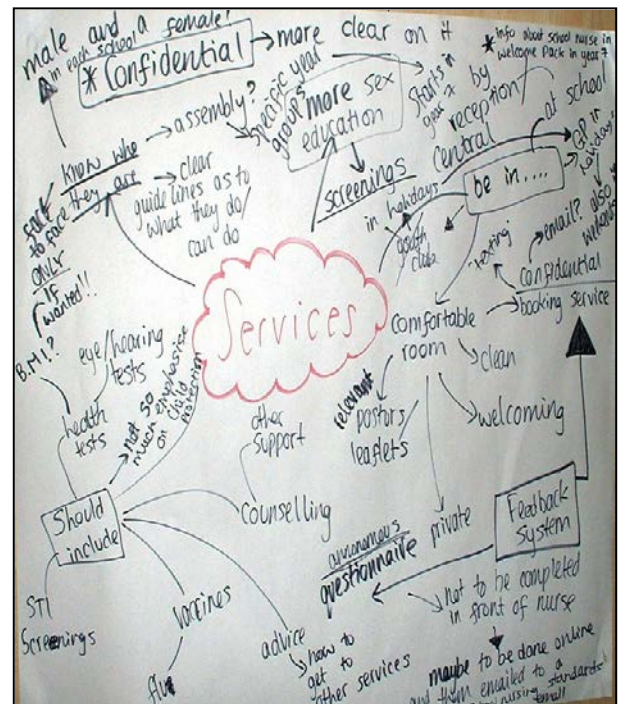 male and a female!
in each school
* Confidential
more clear on it
* info about school nurse in
welcome pack in year 7
know who
they are
assembly?
face
to face
ONLY
if
wanted!!
clear
guidelines as to
what they do/
can do
specific year
groups
more sex
education
starts in
year 7
screenings
by
reception
central
at school
GP in
holidays
be in....
in holidays
youth
club
Services
texting
email?
also
website
confidential
booking service
comfortable
room
clean
welcoming
relevant
postors/
leaflets
private
B.M.I?
eye/hearing
tests
health
tests
Not so
much emphasise
on child
protection
Should
include
other
support
Counselling
STI
Screenings
Vaccines
flu
advice
how to
get to
other services
Feedback
System
anonomous
questionnaire
not to be completed
in front of nurse
maybe to be done online
and them emailed to a
nursing standards
email